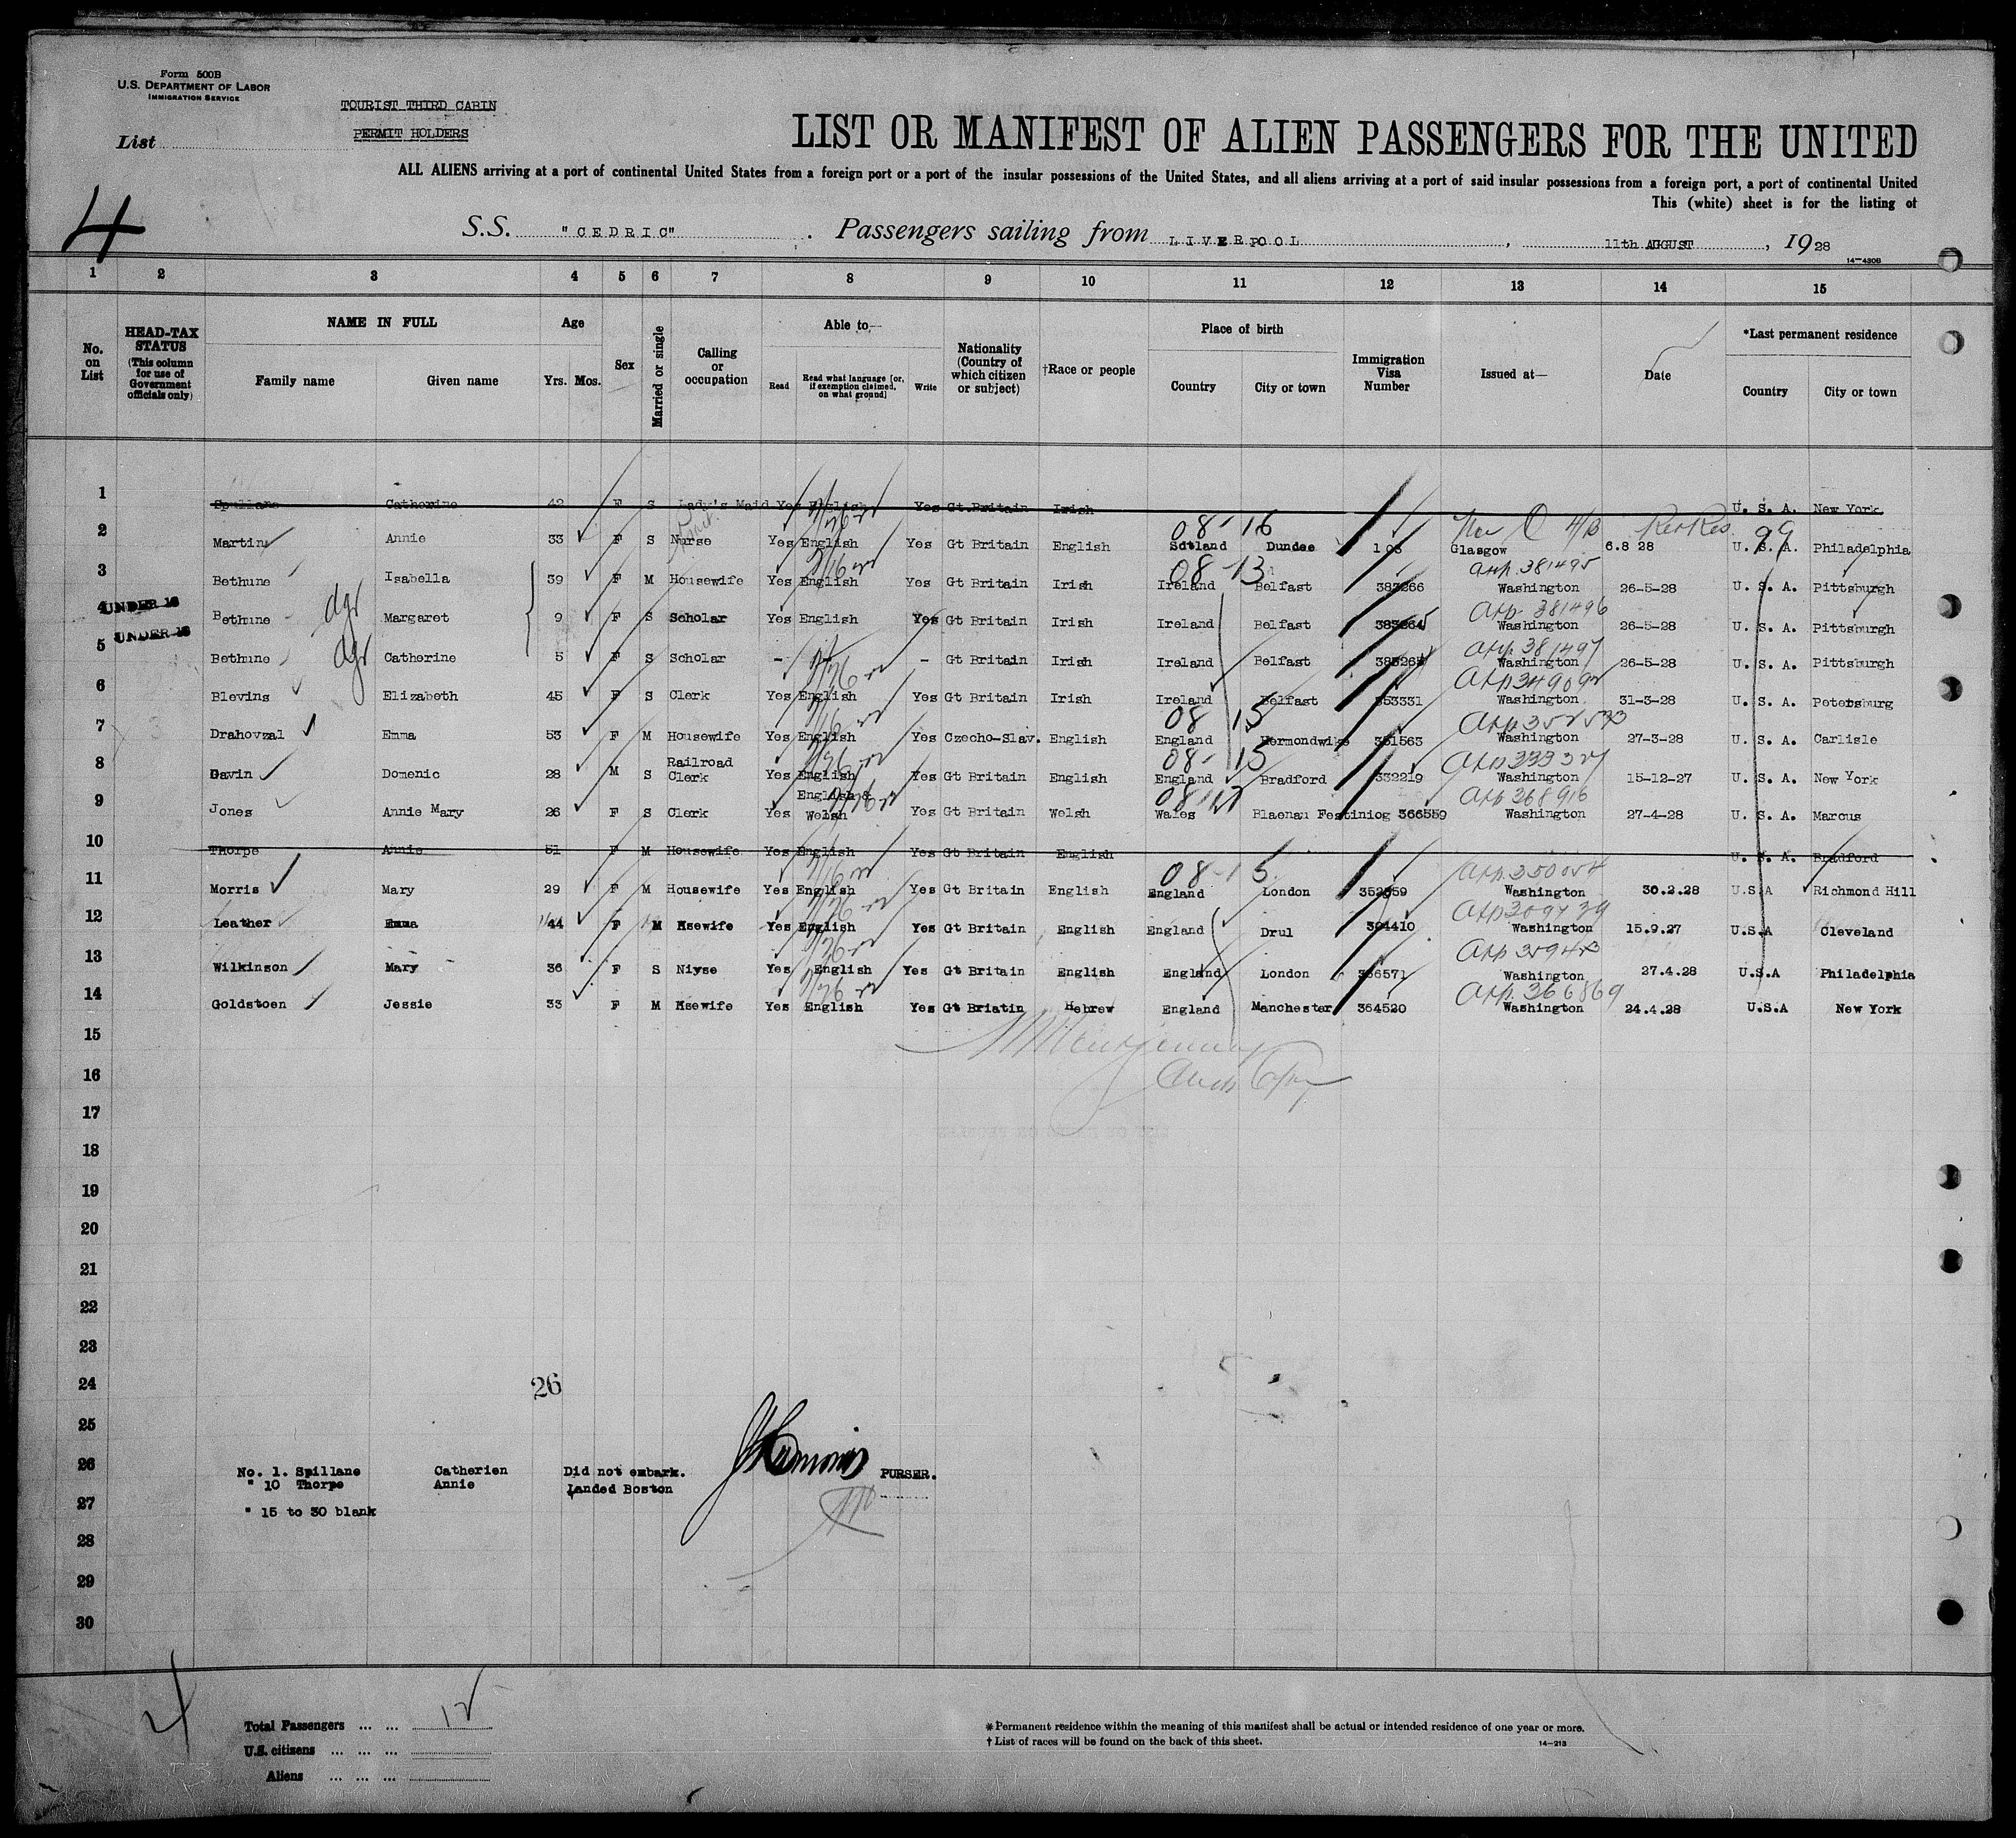 Form 500B
U.S. DEPARTMENT OF LABOR
IMMIGRATION SERVICE
TOURIST THIRD CABIN
PERMIT HOLDERS
List
LIST OR MANIFEST OF ALIEN PASSENGERS FOR THE UNITED
ALL ALIENS arriving at a port of continental United States from a foreign port or a port of the insular possessions of the United States, and all aliens arriving at a port of said insular possessions from a foreign port, a port of continental United
This (white) sheet is for the listing of
4
S.S. "CEDRIC" Passengers sailing from LIVERPOOL, 11th AUGUST, 1928
14-430B
1 2 3 4 5 6 7 8 9 10 11 12 13 14 15
No. on List
HEAD-TAX STATUS (This column for use of Government officials only)
NAME IN FULL
Family name Given name
Age
Yrs. Mos.
Sex
Married or single
Calling or occupation
Able to—
Read Read what language [or, if exemption claimed, on what ground] Write
Nationality (Country of which citizen or subject)
†Race or people
Place of birth
Country City or town
Immigration Visa Number
Issued at—
Date
*Last permanent residence
Country City or town
1 Spullane Catherine 42 F S Lady's Maid Yes English Yes Gt.Britain Irish U. S. A. New York
08-16
2 Martin Annie 33 F S Nurse Yes English Yes Gt Britain English Scotland Dundee 1 03 Glasgow 6.8 28 U. S. A. Philadelphia
08-13 app. 381495
3 Bethune Isabella 39 F M Housewife Yes English Yes Gt Britain Irish Ireland Belfast 383266 Washington 26-5-28 U. S. A. Pittsburgh
app. 381496
UNDER 16 4 Bethune dgr Margaret 9 F S Scholar Yes English Yes Gt Britain Irish Ireland Belfast 383264 Washington 26-5-28 U. S. A. Pittsburgh
app. 381497
UNDER 16 5 Bethune dgr Catherine 5 F S Scholar - - - Gt Britain Irish Ireland Belfast 383265 Washington 26-5-28 U. S. A. Pittsburgh
6 Blevins Elizabeth 45 F S Clerk Yes English Yes Gt Britain Irish Ireland Belfast 353331 Washington 31-3-28 U. S. A. Petersburg
08 15
7 Drahovzal Emma 53 F M Housewife Yes English Yes Czecho-Slav. English England Hermondwike 351563 Washington 27-3-28 U. S. A. Carlisle
08-15
8 Gavin Domenic 28 M S Railroad Clerk Yes English Yes Gt Britain English England Bradford 332219 Washington 15-12-27 U. S. A. New York
app 368916
9 Jones Annie Mary 26 F S Clerk Yes English & Welsh Yes Gt Britain Welsh Wales Blaenau Festiniog 366559 Washington 27-4-28 U. S. A. Marcus
10 Thorpe Annie 51 F M Housewife Yes English Yes Gt Britain English U. S. A. Bradford
08-15
11 Morris Mary 29 F M Housewife Yes English Yes Gt Britain English England London 352659 Washington 30.2.28 U.S.A Richmond Hill
12 Leather Emma 44 F M Hsewife Yes English Yes Gt Britain English England Drul 304410 Washington 15.9.27 U.S.A Cleveland
13 Wilkinson Mary 36 F S Niyse Yes English Yes Gt Britain English England London 366571 Washington 27.4.28 U.S.A Philadelphia
app. 366869
14 Goldstoen Jessie 33 F M Hsewife Yes English Yes Gt Briatin Hebrew England Manchester 364520 Washington 24.4.28 U.S.A New York
15
16
17
18
19
20
21
22
23
24
26
25
26
No. 1. Spillane Catherien Did not embark. PURSER.
" 10 Thorpe Annie Landed Boston
27
" 15 to 30 blank
28
29
30
4
Total Passengers ... ... 12
U.S. citizens ... ... ...
Aliens ... ... ...
*Permanent residence within the meaning of this manifest shall be actual or intended residence of one year or more.
†List of races will be found on the back of this sheet.
14-213